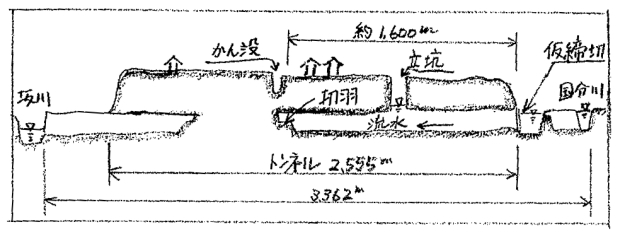 約1,600m
かん没
立坑
仮締切
国分川
坂川
切羽
流水
トンネル 2,555m
3,362m